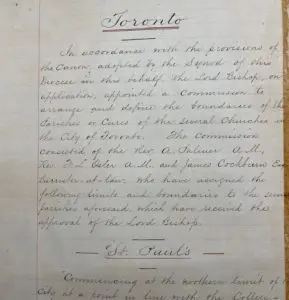 Toronto
In accordance with the provisions of
the Canon, adopted by the Synod of this
Diocese in this behalf, the Lord Bishop, on
application, appointed a Commission to
arrange and define the boundaries of the
Parishes or Cures of the several Churches in
the City of Toronto. The Commission
consisted of the Rev. A. Palmer A.M.,
Rev. F. L. Osler A.M. and James Cockburn Esq
Barrister-at-law, who have assigned the
following limits and boundaries to the
parishes aforesaid, which have received the
approval of the Lord Bishop.
St. Paul's
"Commencing at the northern limit of
City at a point in line with the College